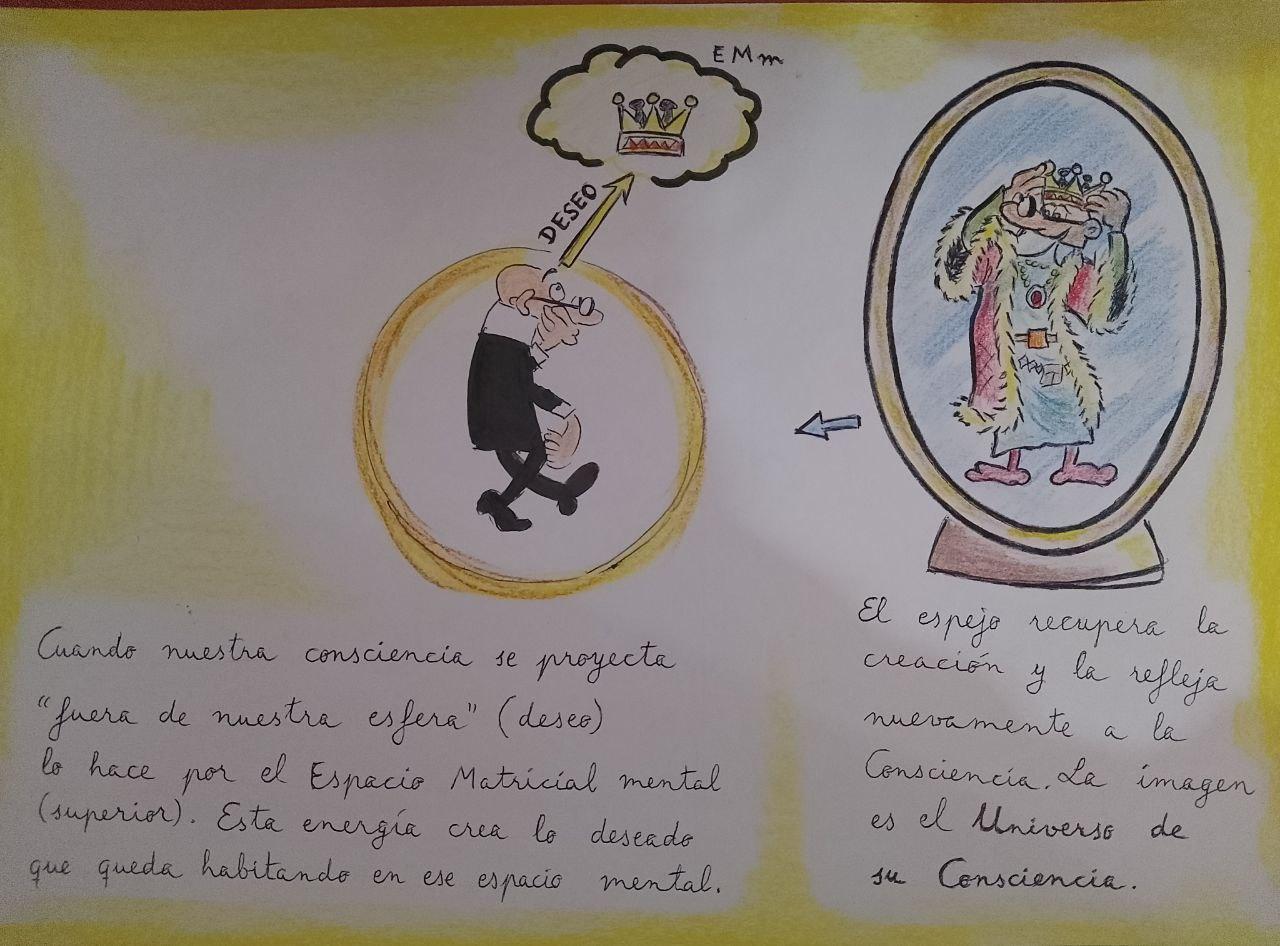 EMm
DESEO
Cuando nuestra consciencia se proyecta
"fuera de nuestra esfera" (deseo)
lo hace por el Espacio Matricial mental
(superior). Esta energía crea lo deseado
que queda habitando en ese espacio mental.
El espejo recupera la
creación y la refleja
nuevamente a la
Consciencia. La imagen
es el Universo de
su Consciencia.